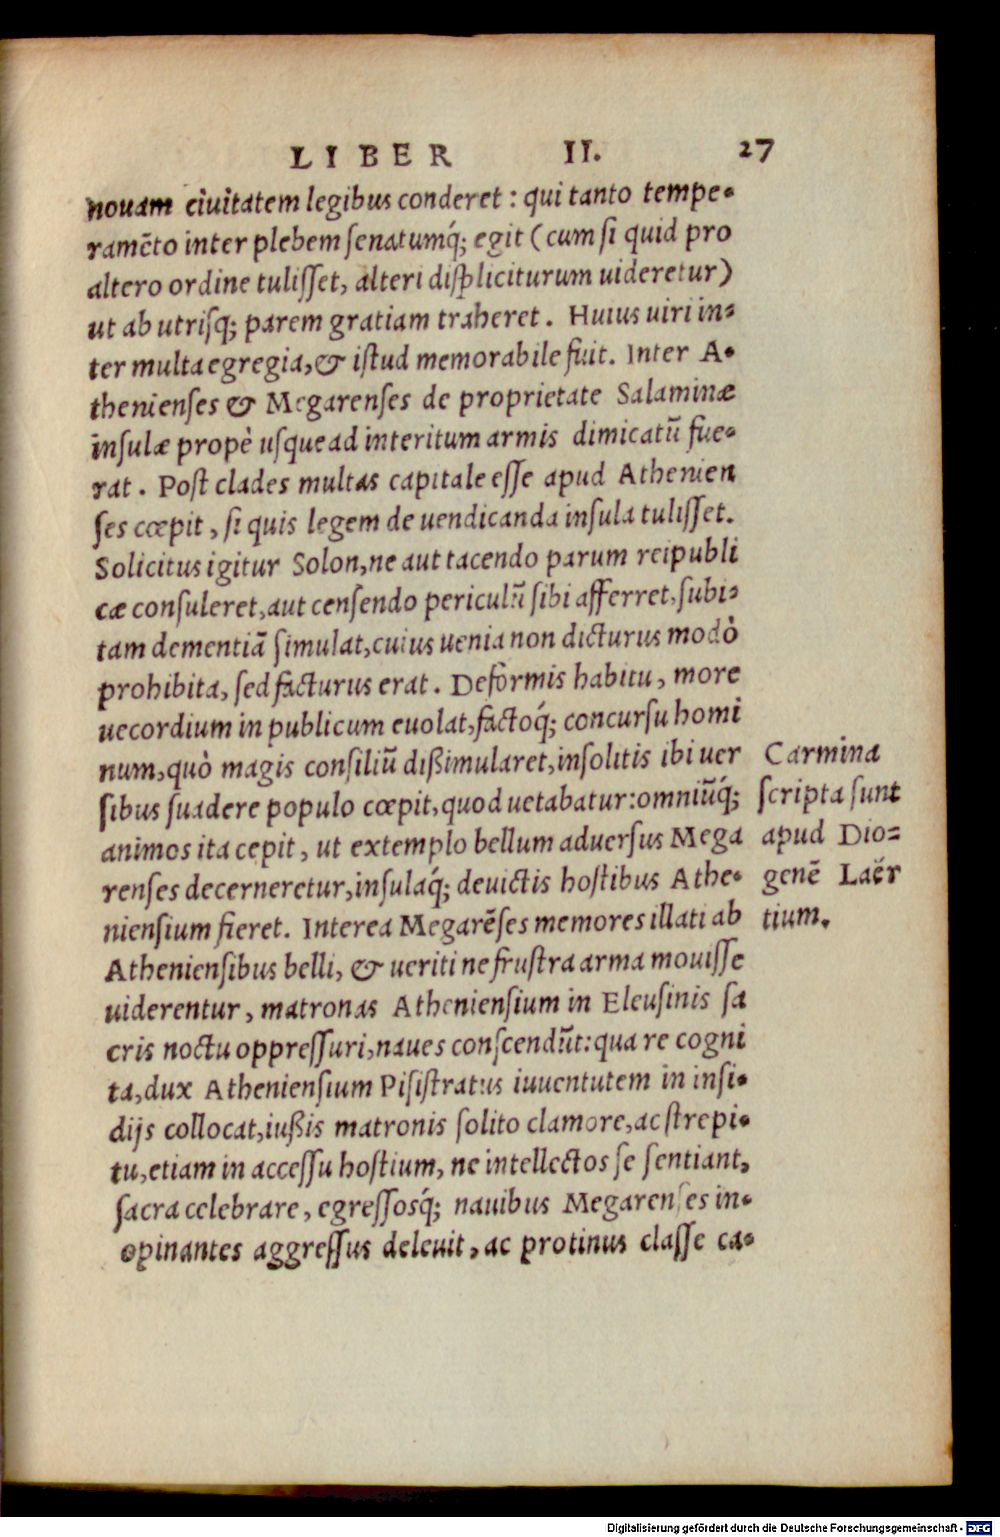 LIBER II. 27
nouam ciuitatem legibus conderet : qui tanto tempe-
ramẽto inter plebem ſenatumq́; egit (cum ſi quid pro
altero ordine tuliſſet, alteri diſpliciturum uideretur)
ut ab utriſq; parem gratiam traheret. Huius uiri in-
ter multa egregia, & iſtud memorabile fuit. Inter A-
thenienſes & Megarenſes de proprietate Salaminæ
inſulæ propè uſque ad interitum armis dimicatũ fue-
rat. Poſt clades multas capitale eſſe apud Athenien
ſes cœpit, ſi quis legem de uendicanda inſula tuliſſet.
Solicitus igitur Solon, ne aut tacendo parum reipubli
cæ conſuleret, aut cenſendo periculũ ſibi afferret, ſubi-
tam dementiã ſimulat, cuius uenia non dicturus modò
prohibita, ſed facturus erat. Deformis habitu, more
uecordium in publicum euolat, factoq́; concurſu homi
num, quò magis conſiliũ dißimularet, inſolitis ibi uer
ſibus ſuadere populo cœpit, quod uetabatur: omniũq́;
animos ita cepit, ut extemplo bellum aduerſus Mega
renſes decerneretur, inſulaq́; deuictis hoſtibus Athe-
nienſium fieret. Interea Megarẽſes memores illati ab
Athenienſibus belli, & ueriti ne fruſtra arma mouiſſe
uiderentur, matronas Athenienſium in Eleuſinis ſa
cris noctu oppreſſuri, naues conſcendũt: qua re cogni
ta, dux Athenienſium Piſiſtratus iuuentutem in inſi-
dijs collocat, iußis matronis ſolito clamore, ac ſtrepi-
tu, etiam in acceſſu hoſtium, ne intellectos ſe ſentiant,
ſacra celebrare, egreſſosq́; nauibus Megarenſes in-
opinantes aggreſſus deleuit, ac protinus claſſe ca-
Carmina
ſcripta ſunt
apud Dio-
genẽ Laër
tium.
Digitalisierung gefördert durch die Deutsche Forschungsgemeinschaft - DFG